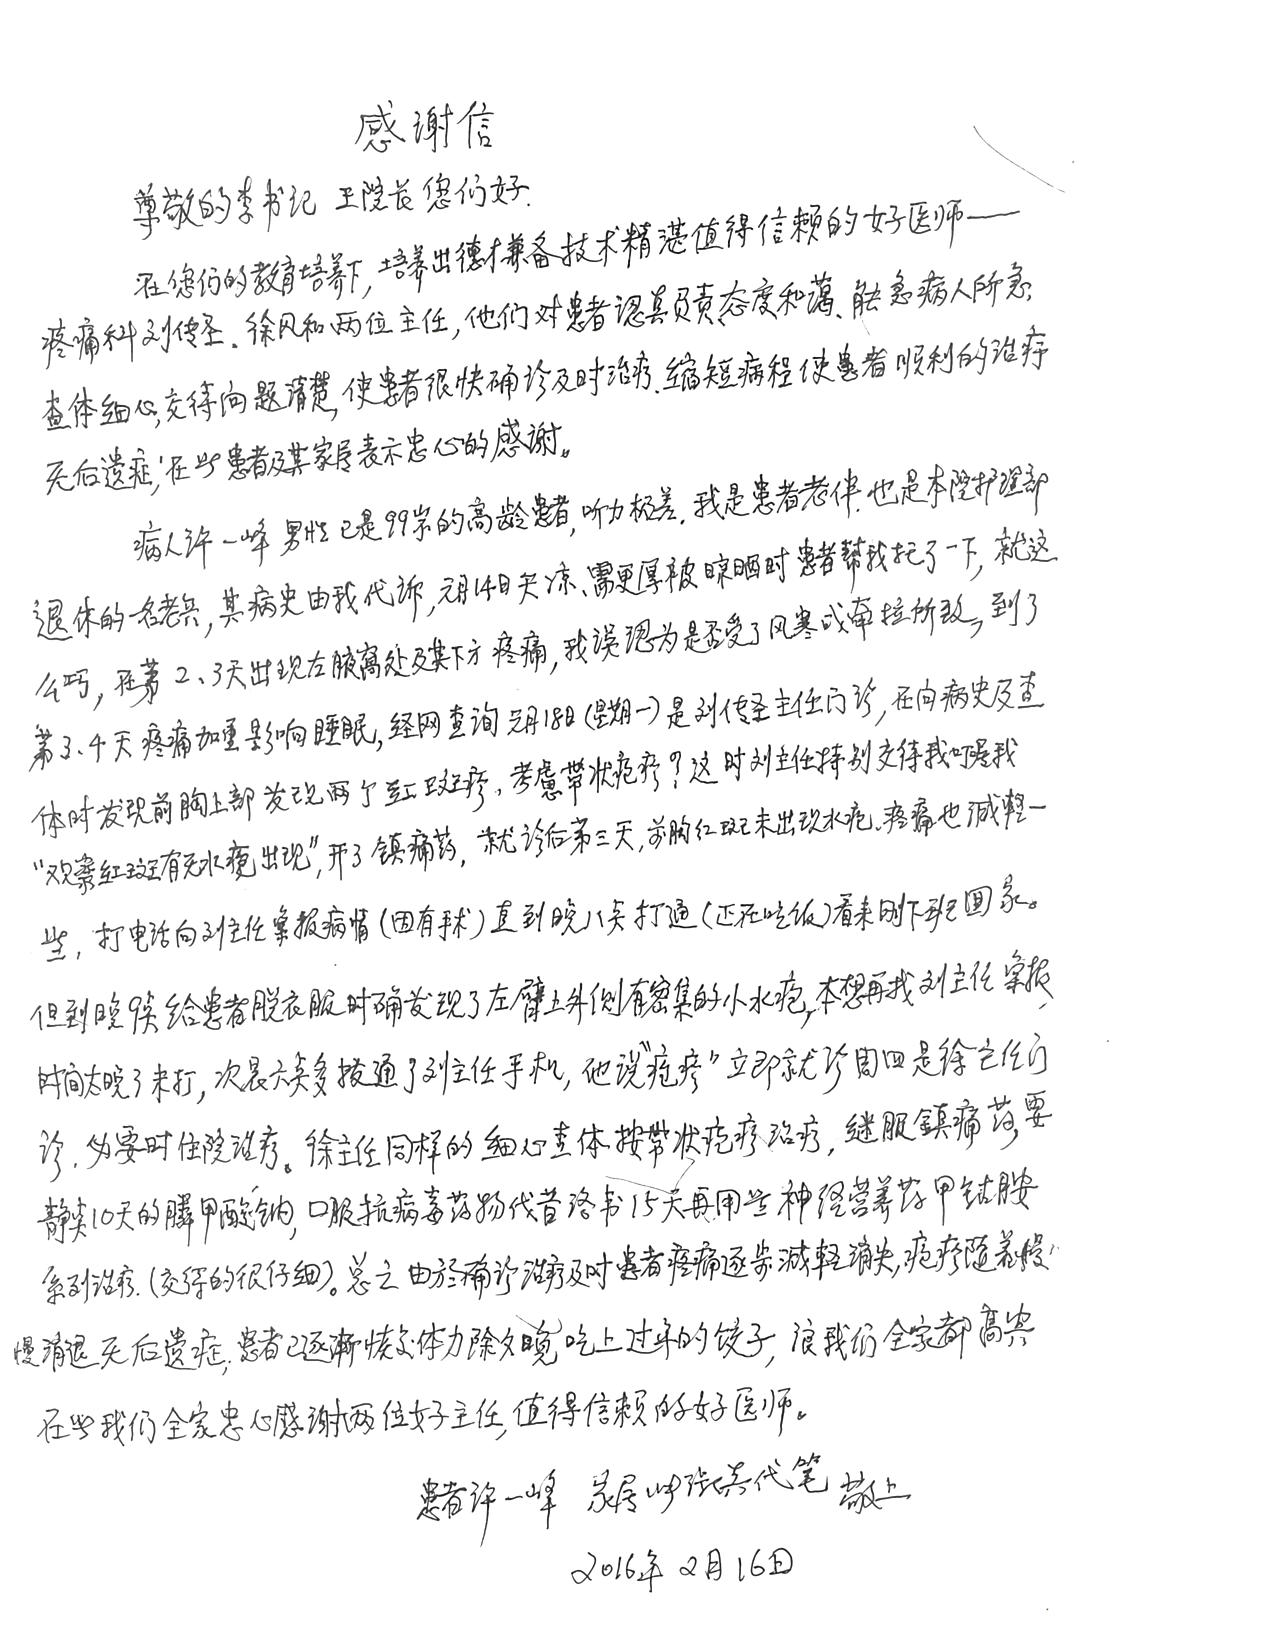 感谢信
尊敬的李书记 王院长您们好.
在您们的教育培养下,培养出德才兼备技术精湛值得信赖的好医师——
疼痛科刘传圣、徐风和两位主任,他们对患者認真负责,态度和蔼、能急病人所急
查体细心,交待问题清楚,使患者很快确诊及时治疗.缩短病程使患者顺利的治疗
无后遗症,在此患者及其家居表示忠心的感谢。
病人许一峰 男性已是99岁的高龄患者,听力极差.我是患者老伴.也是本院护理部
退休的一名老兵,其病史由我代诉,元月14日天凉、需更厚被晾晒时患者幫我托了一下,就这
么巧,在第2、3天出现左腋窝处及其下方疼痛,我误認为是否受了风寒或牵拉所致,到了
第3、4天疼痛加重影响睡眠,经网查询元月18日(星期一)是刘传圣主任门诊,在向病史及查
体时发现前胸上部发现两个红斑疹,考慮带状疱疹?这时刘主任特别交待我嘱我
“观察红斑有无水疱出现”,开了镇痛药,就诊后第三天,前胸红斑未出现水疱、疼痛也减轻一
些,打电话向刘主任彙报病情(因有手术)直到晚八点打通(正在吃饭)看来刚下班回家。
但到晚9点给患者脱衣服时确发现了左臂上外侧有密集的小水疱,本想再找刘主任彙报,
时间太晚了未打,次晨六点多拨通了刘主任手机,他说“疱疹”立即就诊周四是徐主任门
诊.必要时住院治疗。徐主任同样的细心查体按带状疱疹治疗,继服鎮痛药,要
静点10天的膦甲酸钠,口服抗病毒药物伐昔洛韦15天再用些神经营养药甲钴胺
系列治疗.(交待的很仔细)。总之由於确诊治疗及时患者疼痛逐步减轻消失,疱疹随着慢
慢消退无后遗症,患者已逐渐恢复体力除夕晚吃上过年的饺子,讓我们全家都高兴
在此我们全家忠心感谢两位好主任,值得信赖的好医师。
患者许一峰 家居 代笔 敬上
2016年2月16日